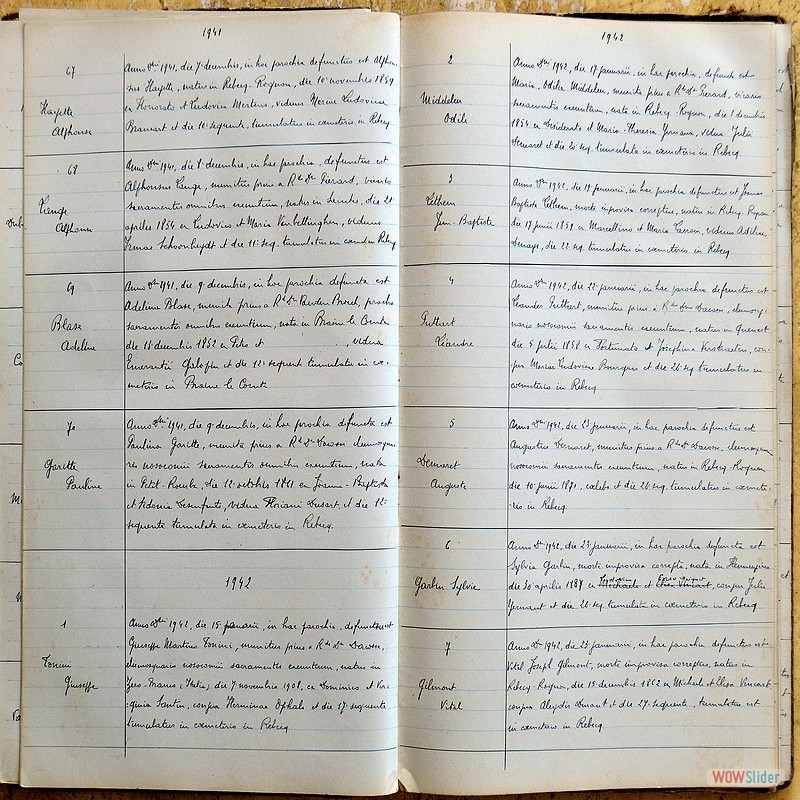 1941
67
Hayette
Alphonse
Anno Dni 1941, die 7 decembris, in hac parochia defunctus est Alphon
sus Hayette, natus in Rebecq-Rognon, die 10 novembris 1859
ex Honorato et Ludovica Mertens, viduus Mariae Ludovicae
et die 10 sequente, tumulatus in cemeterio in Rebecq
68
Alphonse
Anno Dni 1941, die 8 decembris, in hac parochia, defunctus est
Alphonsus munitus prius a Rdo Dno Pierard, vicario
sacramentis omnibus exeuntium, natus in die 21
aprilis 1854 ex Ludovico et Maria viduus
Schoonheydt et die 11 seq. tumulatus in Rebecq
69
Blase
Adeline
Anno Dni 1941, die 9 decembris, in hac parochia defuncta est
Adelina Blase, munita prius a Rdo Dno parocho
sacramentis omnibus exeuntium, nata in Braine le Comte
die 18 decembris 1852 ex et , vidua
Emerantii Galopin et die 12 sequente tumulata in coe-
meterio in Braine le Comte
70
Garitte
Pauline
Anno Dni 1941, die 9 decembris, in hac parochia defuncta est
Paulina Garitte, munita prius a Rdo Dno Dawson
nosocomii sacramentis omnibus exeuntium, nata
in Petit-Roeulx, die 12 octobris 1861 ex Joanne-Baptista
et vidua Floriani Dusart, et die 12
sequente tumulata in cemeterio in Rebecq.
1942
1
Tonini
Giuseppe
Anno Dni 1942, die 15 januarii, in hac parochia, defunctus est
Giuseppe Martino Tonini, munitus prius a Rdo Dno Dawson,
nosocomii sacramentis exeuntium, natus in
(Italia) die 7 novembris 1908, ex Dominico et
Santin, conjux Herminae et die 17 sequente
tumulatus in coemeterio in Rebecq.
1942
2
Middelen
Odile
Anno Dni 1942, die 17 januarii, in hac parochia, defuncta est
Maria Odila Middelen, munita prius a Rdo Dno Pierard, vicario
sacramentis exeuntium, nata in Rebecq-Rognon, die 8 decembris
1854 ex Desiderato et Maria-Theresia vidua Julii
Demaret et die 20 seq. tumulata in coemeterio in Rebecq.
3
Jean-Baptiste
Anno Dni 1942, die 19 januarii, in hac parochia defunctus est Joannes
Baptista morte improvisa correptus, natus in Rebecq-Rognon
die 17 junii 1859 ex Marcellino et Maria viduus Adelinae
die 22 seq. tumulatus in coemeterio in Rebecq
4
Léandre
Anno Dni 1942, die 22 januarii, in hac parochia, defunctus est
Leander munitus prius a Rdo Dno Dawson,
nosocomii sacramentis exeuntium, natus in Quenast
die 5 julii 1858 ex Fortunato et Josephina con-
jux Mariae Ludovicae Bourgeois et die 26 seq. tumulatus in
coemeterio in Rebecq.
5
Demaret
Auguste
Anno Dni 1942, die 23 januarii, in hac parochia defunctus est
Augustus Demaret, munitus prius a Rdo Dno Dawson,
nosocomii sacramentis exeuntium, natus in Rebecq-Rognon
die 10 junii 1871, caelebs, et die 26 seq. tumulatus in coemete-
rio in Rebecq.
6
Garbin Sylvie
Anno Dni 1942, die 23 januarii, in hac parochia defuncta est
Sylvia Garbin, morte improvisa correpta, nata in Hennuyères
die 30 aprilis 1887 ex Michaele et Elisa Vincart, conjux Julii
et die 26 seq. tumulata in coemeterio in Rebecq
7
Gilmont
Vital
Anno Dni 1942, die 23 januarii, in hac parochia, defunctus est
Vital Joseph Gilmont, morte improvisa correptus, natus in
Rebecq-Rognon, die 15 decembris 1862 ex Michaele et Elisa Vincart
conjux Aleydis Dumont et die 27 sequente, tumulatus est
in coemeterio in Rebecq.
WOWSlider